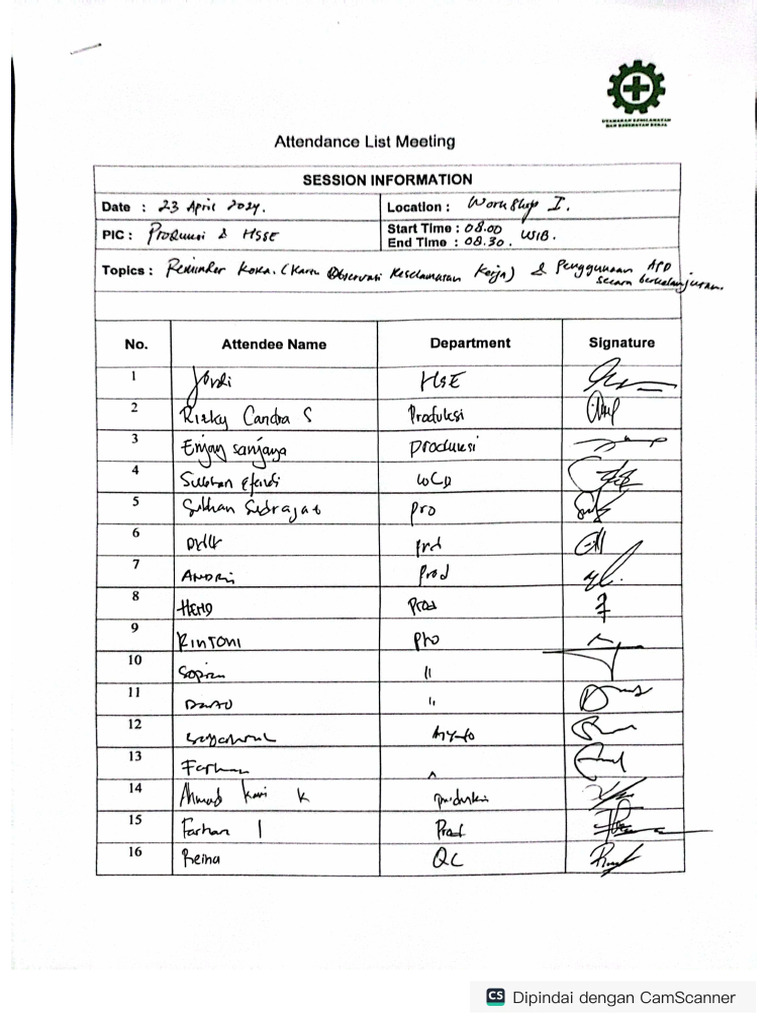 UTAMAKAN KESELAMATAN
DAN KESEHATAN KERJA
Attendance List Meeting
SESSION INFORMATION
Date : 23 April 2024.
Location : Workshop I.
PIC : Produksi & HSSE
Start Time : 08.00 WIB.
End Time : 08.30.
Topics : Reminder Koka. (Kartu Observasi Keselamatan Kerja) & Penggunaan APD
secara berkelanjutan.
No. Attendee Name Department Signature
1 Jordi HSE
2 Rizky Candra S Produksi
3 Enjoy sanjaya produksi
4 Sulthan efendi
5 Sudrajat pro
6 prd
7 ANDRI Prod
8 HERD Prod
9 RINTONI pro
10 Sopian "
11 "
12
13 Farhan
14 Ahmad K produksi
15 Farhan Prod
16 Reina QC
CS Dipindai dengan CamScanner